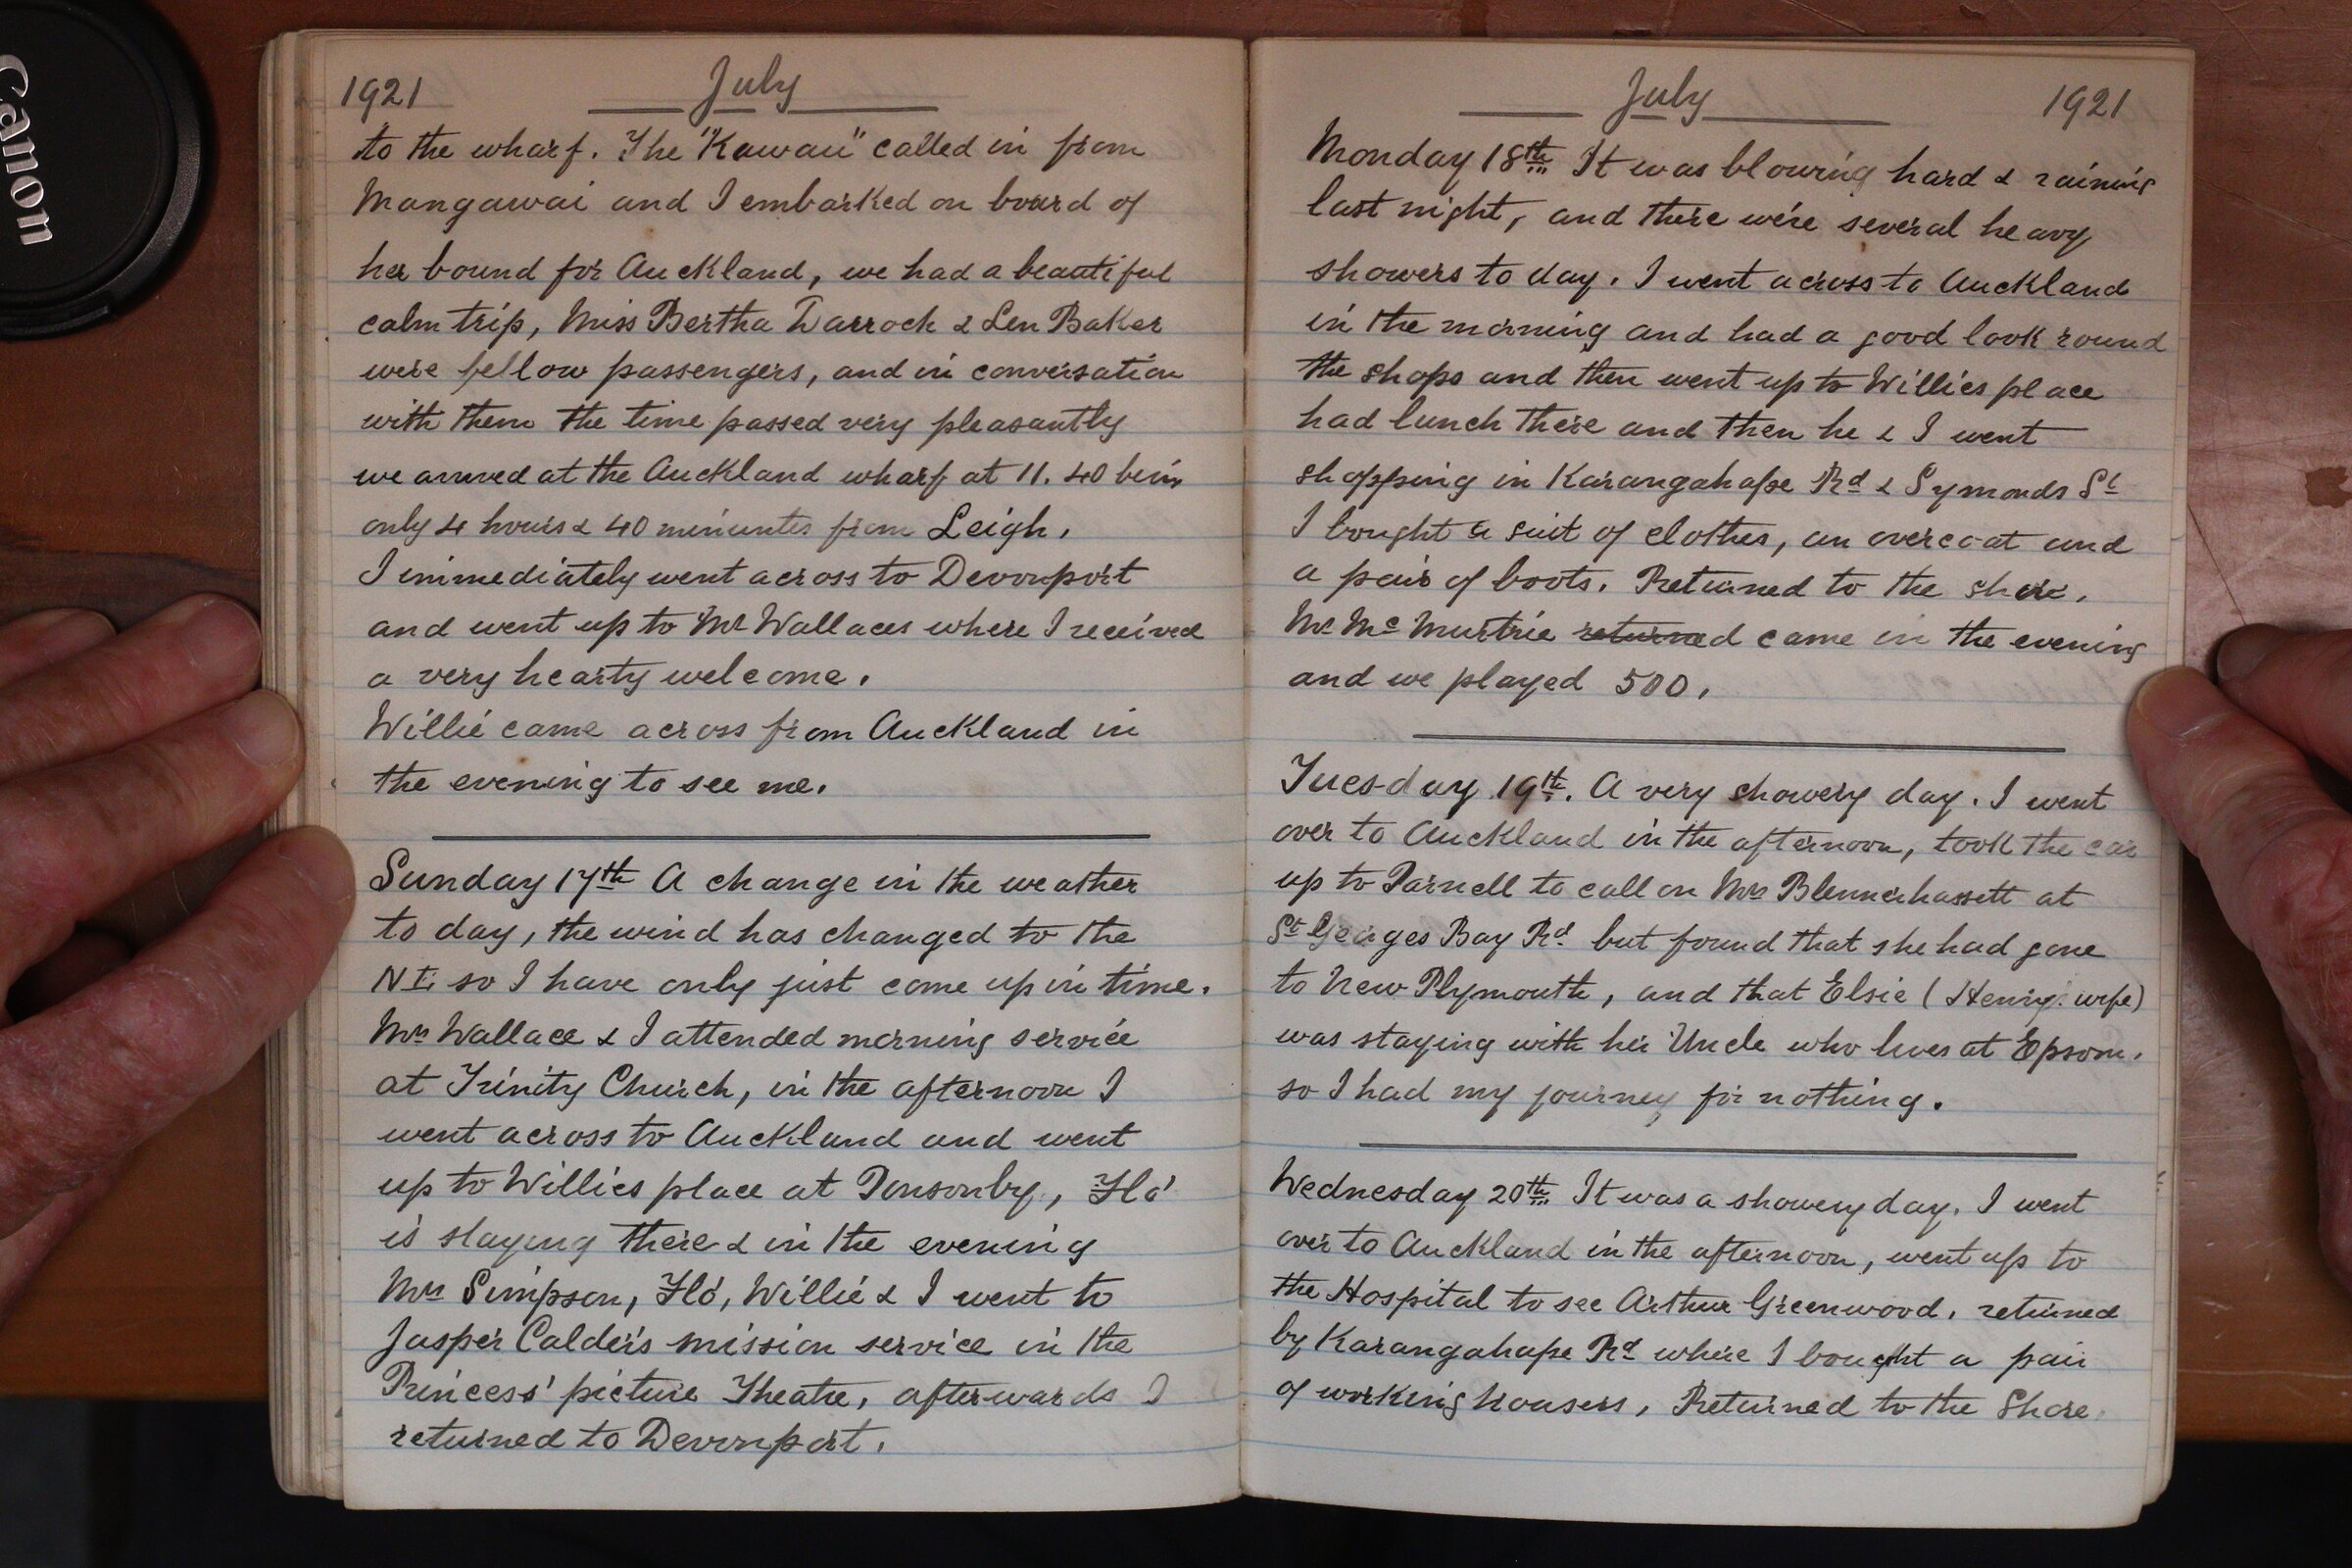 Canon
1921 July
to the wharf. The "Kawau" called in from
Mangawai and I embarked on board of
her bound for Auckland, we had a beautiful
calm trip, Miss Bertha Darroch & Len Baker
were fellow passengers, and in conversation
with them the time passed very pleasantly
we arrived at the Auckland wharf at 11.40 being
only 4 hours & 40 minuntes from Leigh.
I immediately went across to Devonport
and went up to Mr Wallaces where I received
a very hearty welcome.
Willie came across from Auckland in
the evening to see me.
Sunday 17th A change in the weather
to day, the wind has changed to the
NE so I have only just come up in time.
Mrs Wallace & I attended morning service
at Trinity Church, in the afternoon I
went across to Auckland and went
up to Willies place at Ponsonby, Flo'
is staying there & in the evening
Mrs Simpson, Flo', Willie & I went to
Jasper Calder's mission service in the
Princess' picture Theatre, afterwards I
returned to Devonport.
July 1921
Monday 18th It was blowing hard & raining
last night, and there were several heavy
showers to day. I went across to Auckland
in the morning and had a good look round
the shops and then went up to Willies place
had lunch there and then he & I went
shopping in Karangahape Rd & Symonds St
I bought a suit of clothes, an overcoat and
a pair of boots. Returned to the shore.
Mr McMurtrie returned came in the evening
and we played 500.
Tuesday 19th. A very showery day. I went
over to Auckland in the afternoon, took the car
up to Parnell to call on Mrs Blennerhassett at
St Georges Bay Rd but found that she had gone
to New Plymouth, and that Elsie (Henry's wife)
was staying with her Uncle who lives at Epsom.
so I had my journey for nothing.
Wednesday 20th It was a showery day. I went
over to Auckland in the afternoon, went up to
the Hospital to see Arthur Greenwood. returned
by Karangahape Rd where I bought a pair
of working trousers, Returned to the Shore.